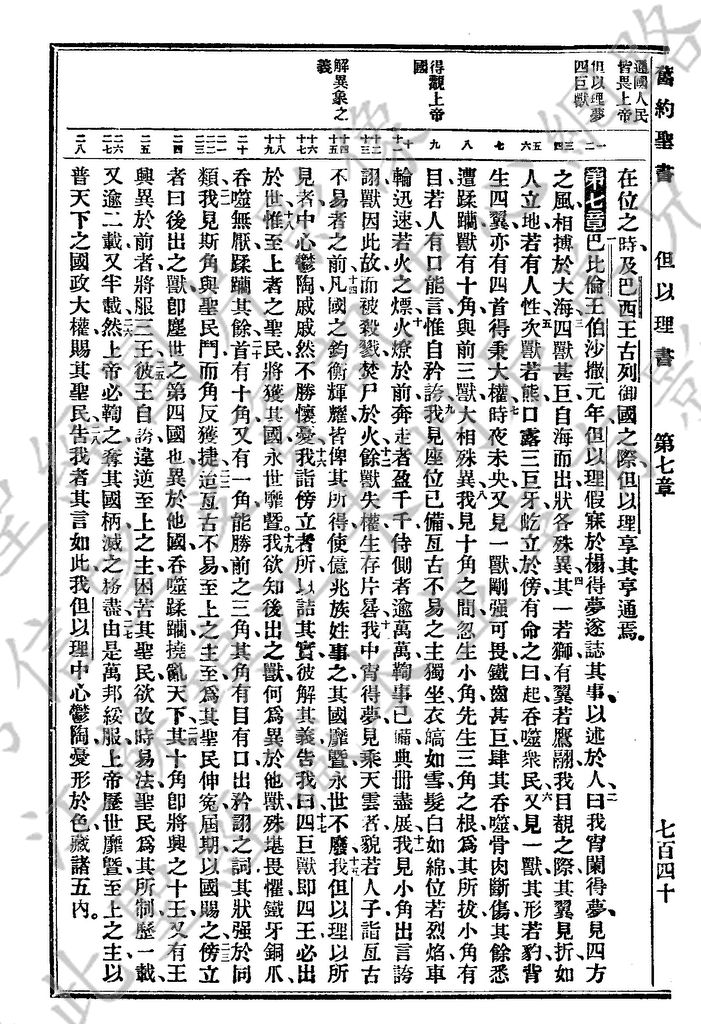 舊約聖書 但以理書 第七章 七百四十
通國人民
皆畏上帝
但以理夢
四巨獸
得觀上帝
國
解異象之
義
一 二 三 四 五 六 七 八 九 十 十一 十二 十三 十四 十五 十六 十七 十八 十九 二十 二一 二二 二三 二四 二五 二六 二七 二八
在位之時、及巴西王古列御國之際、但以理享其亨通焉。
第七章 巴比倫王伯沙撒元年、但以理假寐於榻、得夢、遂誌其事、以述於人、曰、我宵闌得夢、見四方
之風相搏於大海、四獸甚巨、自海而出、狀各殊異、其一若獅、有翼若鷹、翩我目覩之際、其翼見折、如
人立地、若有人性、次獸若熊、口露三巨牙、屹立於傍、有命之曰、起、吞噬衆民、又見一獸、其形若豹、背
生四翼、亦有四首、得秉大權、時夜未央、又見一獸、剛强可畏、鐵齒甚巨、肆其吞噬、骨肉斷傷、其餘悉
遭蹂躪、獸有十角、與前三獸大相殊異、我見十角之間、忽生小角、先生三角之根、爲其所拔、小角有
目若人、有口能言、惟自矜誇、我見座位已備、亙古不易之主獨坐、衣縞如雪、髮白如綿、位若烈焰、車
輪迅速、若火之熛、火燎於前、奔走者盈千千、侍側者逾萬萬、鞫事已備、典册盡展、我見小角出言誇
詡、獸因此故而被殺戮、焚尸於火、餘獸失權、生存片晷、我中宵得夢、見乘天雲者、貌若人子、詣亙古
不易者之前、凡國之鈞衡輝耀、皆俾其所得、使億兆族姓事之、其國靡曁、永世不廢、我但以理以所
見者、中心鬱陶、戚戚然不勝懷憂、我詣傍立者所、以詰其實、彼解其義、告我曰、四巨獸、卽四王、必出
於世、惟至上者之聖民、將獲其國、永世靡曁。我欲知後出之獸、何爲異於他獸、殊堪畏懼、鐵牙銅爪、
吞噬無厭、蹂躪其餘、首有十角、又有一角、能勝前之三角、其角有目有口、出矜詡之詞、其狀强於同
類、我見斯角與聖民鬥、而角反獲捷、迨亙古不易至上之主至、爲其聖民伸寃、屆期以國賜之、傍立
者曰、後出之獸、卽塵世之第四國也、異於他國、吞噬蹂躪、撓亂天下、其十角卽將興之十王、又有王
興、異於前者、將服三王、彼王自誇、違逆至上之主、困苦其聖民、欲改時易法、聖民爲其所制、歷一載、
又逾二載、又半載、然上帝必鞫之、奪其國柄、滅之務盡、由是萬邦綏服上帝、歷世靡曁、至上之主、以
普天下之國政大權、賜其聖民、告我者其言如此、我但以理中心鬱陶、憂形於色、藏諸五內。